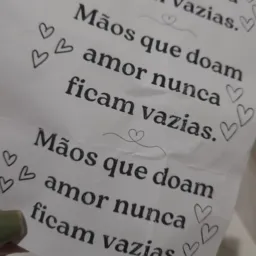 vazias.
Mãos que doam
amor nunca
ficam vazias.
Mãos que doam
amor nunca
ficam vazias